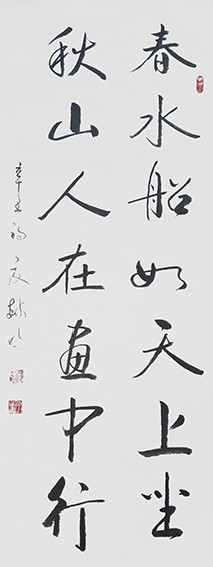 春水船如天上坐
秋山人在画中行